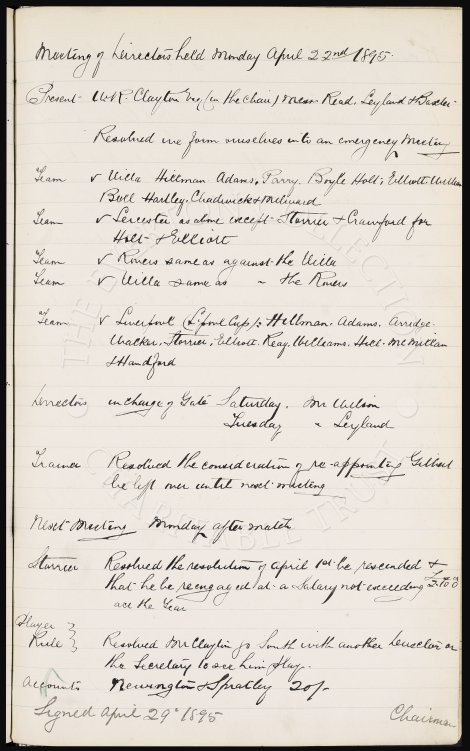 Meeting of Directors held Monday April 22nd 1895.
Present W.R. Clayton Esq (in the Chair) & Messrs Read, Leyland & Baxter
Resolved we form ourselves into an emergency Meeting
Team v Villa Hillman. Adams, Parry. Boyle Holt, Elliott Williams
Bell Hartley, Chadwick & Milward
Team v Leicester as above except Storrier & Crawford for
Holt & Elliott
Team v Rovers same as against the Villa
Team v Villa same as " the Rovers
Team v Liverpool (L'pool Cup):- Hillman. Adams. Arridge.
Walker, Storrier, Elliott. Reay. Williams. Hill. McMillan
& Handford
Directors in charge of Gate Saturday. Mr Wilson
Tuesday " Leyland
Trainer Resolved the consideration of re-appointing Gilbert
be left over until next meeting
Next Meeting Monday after match
Storrier Resolved the resolution of April 1st be rescinded &
that he be reengaged at a Salary not exceeding £3.10.0
all the Year
Player }
Rule } Resolved Mr Clayton go South with another Director or
the Secretary to see him play.
Accounts Newington & Spratley 20/-
Signed April 29th 1895 Chairman
THE COLLECTION
CHARITABLE TRUST